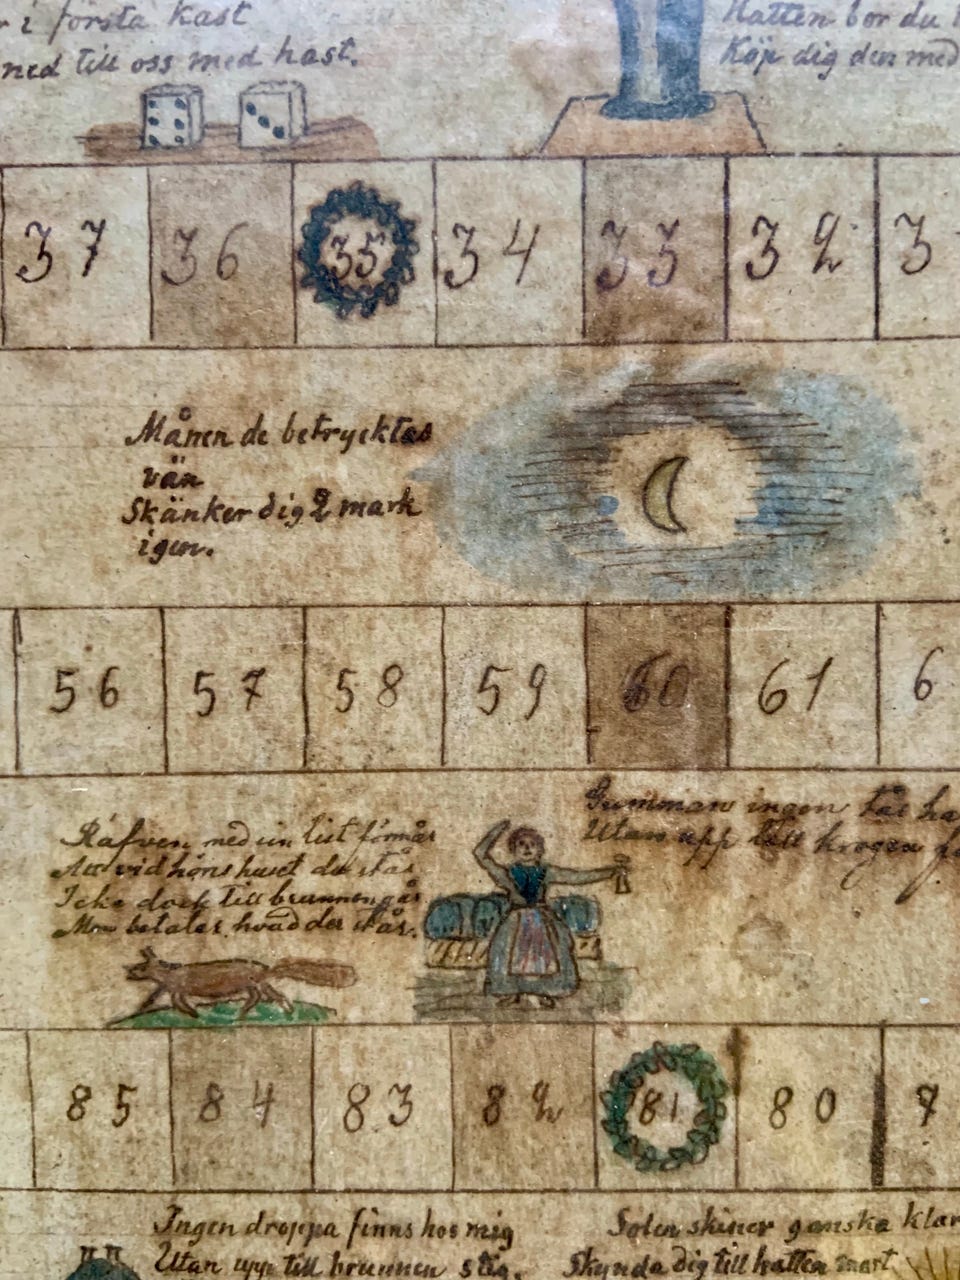 i första kast
ned till oss med hast.
Hatten bor du
Köp dig den med
37 36 35 34 33 32 3
Månen de betrycktas
vän
Skänker dig 2 mark
igen.
56 57 58 59 60 61 6
Räfven med sin list förmår
Att vid hönshuset du står
Icke dock till brunnen går
Men betalar hvad der står.
Gumman ingen tår ha
Utan upp till krogen
85 84 83 82 81 80 7
Ingen droppa finns hos mig
Utan upp till brunnen stig.
Solen skiner ganska klar
Skynda dig till hatten snart